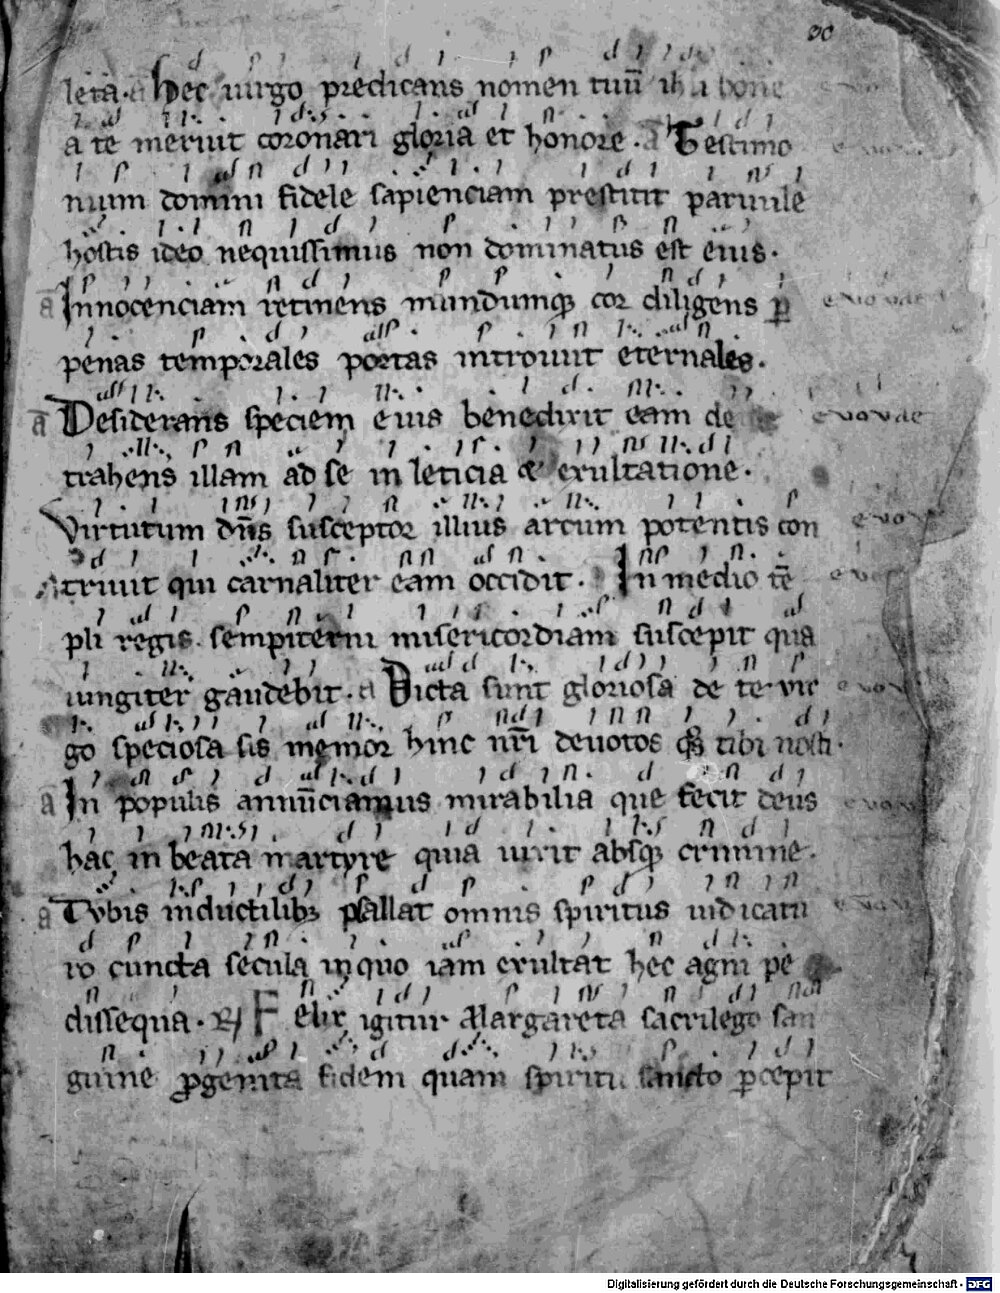 leta. a hec uirgo predicans nomen tuū
a te meruit coronari gloria et honore. a Testimo
nium domini fidele sapienciam prestitit paruule
hostis ideo nequissimus non dominatus est eius.
a Innocenciam retinens mundumq; cor diligens p
penas temporales portas introiuit eternales.
a Desiderans speciem eius benedixit eam de euouae
trahens illam ad se in leticia & exultatione.
Virtutum dn̄s susceptor illius arcum potentis con
triuit qui carnaliter eam occidit. In medio tē
pli regis sempiterni misericordiam suscepit qua
iungiter gaudebit. a Dicta sunt gloriosa de te uir
go speciosa sis memor hinc nr̄i deuotos tibi
a In populis annūciamus mirabilia que fecit deus
hac in beata martyre quia uixit absq; crimine.
a Tvbis inductilib; psallat omnis spiritus
ro cuncta secula in quo iam exultat hec agni pe
dissequa. Felix igitur Margareta sacrilego san
guine progenita fidem quam spiritu sancto percepit
Digitalisierung gefördert durch die Deutsche Forschungsgemeinschaft - DFG